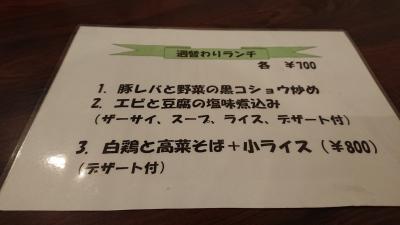 週替わりランチ
各 ¥700
1. 豚レバと野菜の黒コショウ炒め
2. エビと豆腐の塩味煮込み
(ザーサイ、スープ、ライス、デザート付)
3. 白鶏と高菜そば+小ライス(¥800)
(デザート付)